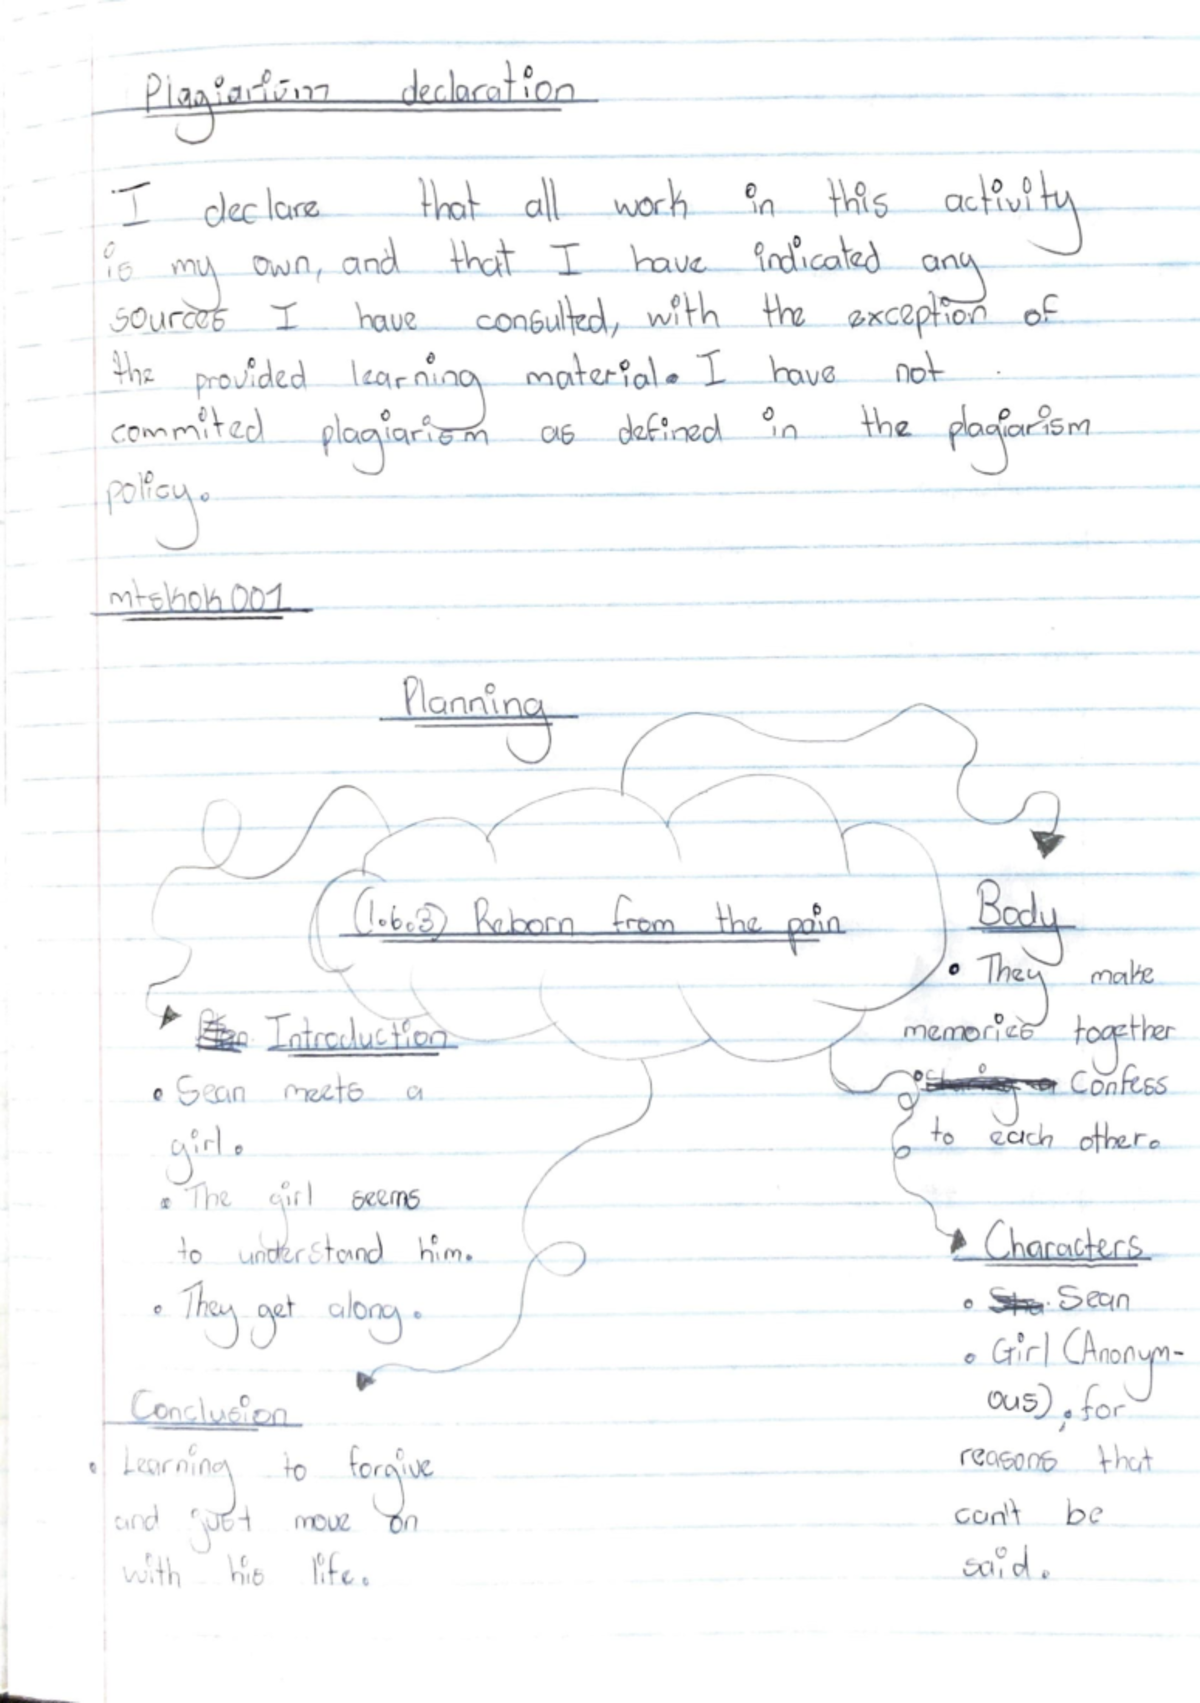 Plagiarism declaration
I declare that all work in this activity
is my own, and that I have indicated any
sources I have consulted, with the exception of
the provided learning material. I have not
commited plagiarism as defined in the plagiarism
policy.
mtskok001
Planning
(1.6.3) Reborn from the pain
Introduction
• Sean meets a
girl.
• The girl seems
to understand him.
• They get along.
Body
• They make
memories together
• Confess
to each other.
Characters
• Sean
• Girl (Anonym-
ous), for
reasons that
can't be
said.
Conclusion
• Learning to forgive
and just move on
with his life.